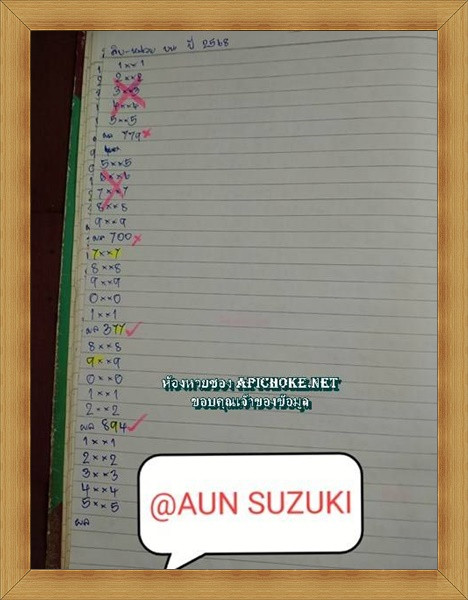 สิบ-หน่วย บน ปี 2568
1××1
2××2
3××3
4××4
5××5
ผล 779×
5××5
6××6
7××7
8××8
9××9
ผล 700×
7××7
8××8
9××9
0××0
1××1
ผล 377✓
8××8
9××9
0××0
1××1
2××2
ผล 894✓
1××1
2××2
3××3
4××4
5××5
ผล
ห้องหวยซอง APICHOKE.NET
ขอบคุณเจ้าของข้อมูล
@AUN SUZUKI